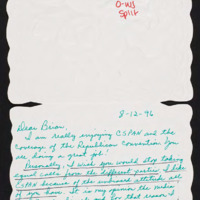 O-WS
Split
8-12-96
Dear Brian,
I am really enjoying CSPAN and the
coverage of the Republican Convention. You
are doing a great job!
Personally, I wish you would stop taking
equal calls from the different parties. I like
CSPAN because of the unbiased attitude all
of you have. It is my opinion the media
and for that reason I